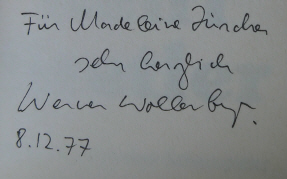 Für Madeleine Zürcher
sehr herzlich
Werner Wollenberger.
8.12.77